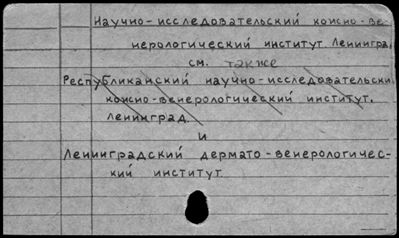 Научно-исследовательский кожно-ве-
нерологический институт. Ленинград.
см. также
Республиканский научно-исследовательский
кожно-венерологический институт.
Ленинград.
и
Ленинградский дермато-венерологичес-
кий институт